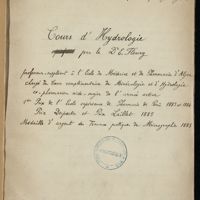 Cours d'Hydrologie
par le Dr E. Fleury
professeur suppléant à l'Ecole de Médecine et de Pharmacie d'Alger
chargé du Cours complémentaire de Minéralogie et d'Hydrologie
ex-pharmacien aide-major de l'armée active
1er Prix de l'Ecole supérieure de Pharmacie de Paris 1883 et 1884
Prix Desportes et Prix Laillet 1885
Médaille d'argent des Travaux pratiques de Micrographie 1885